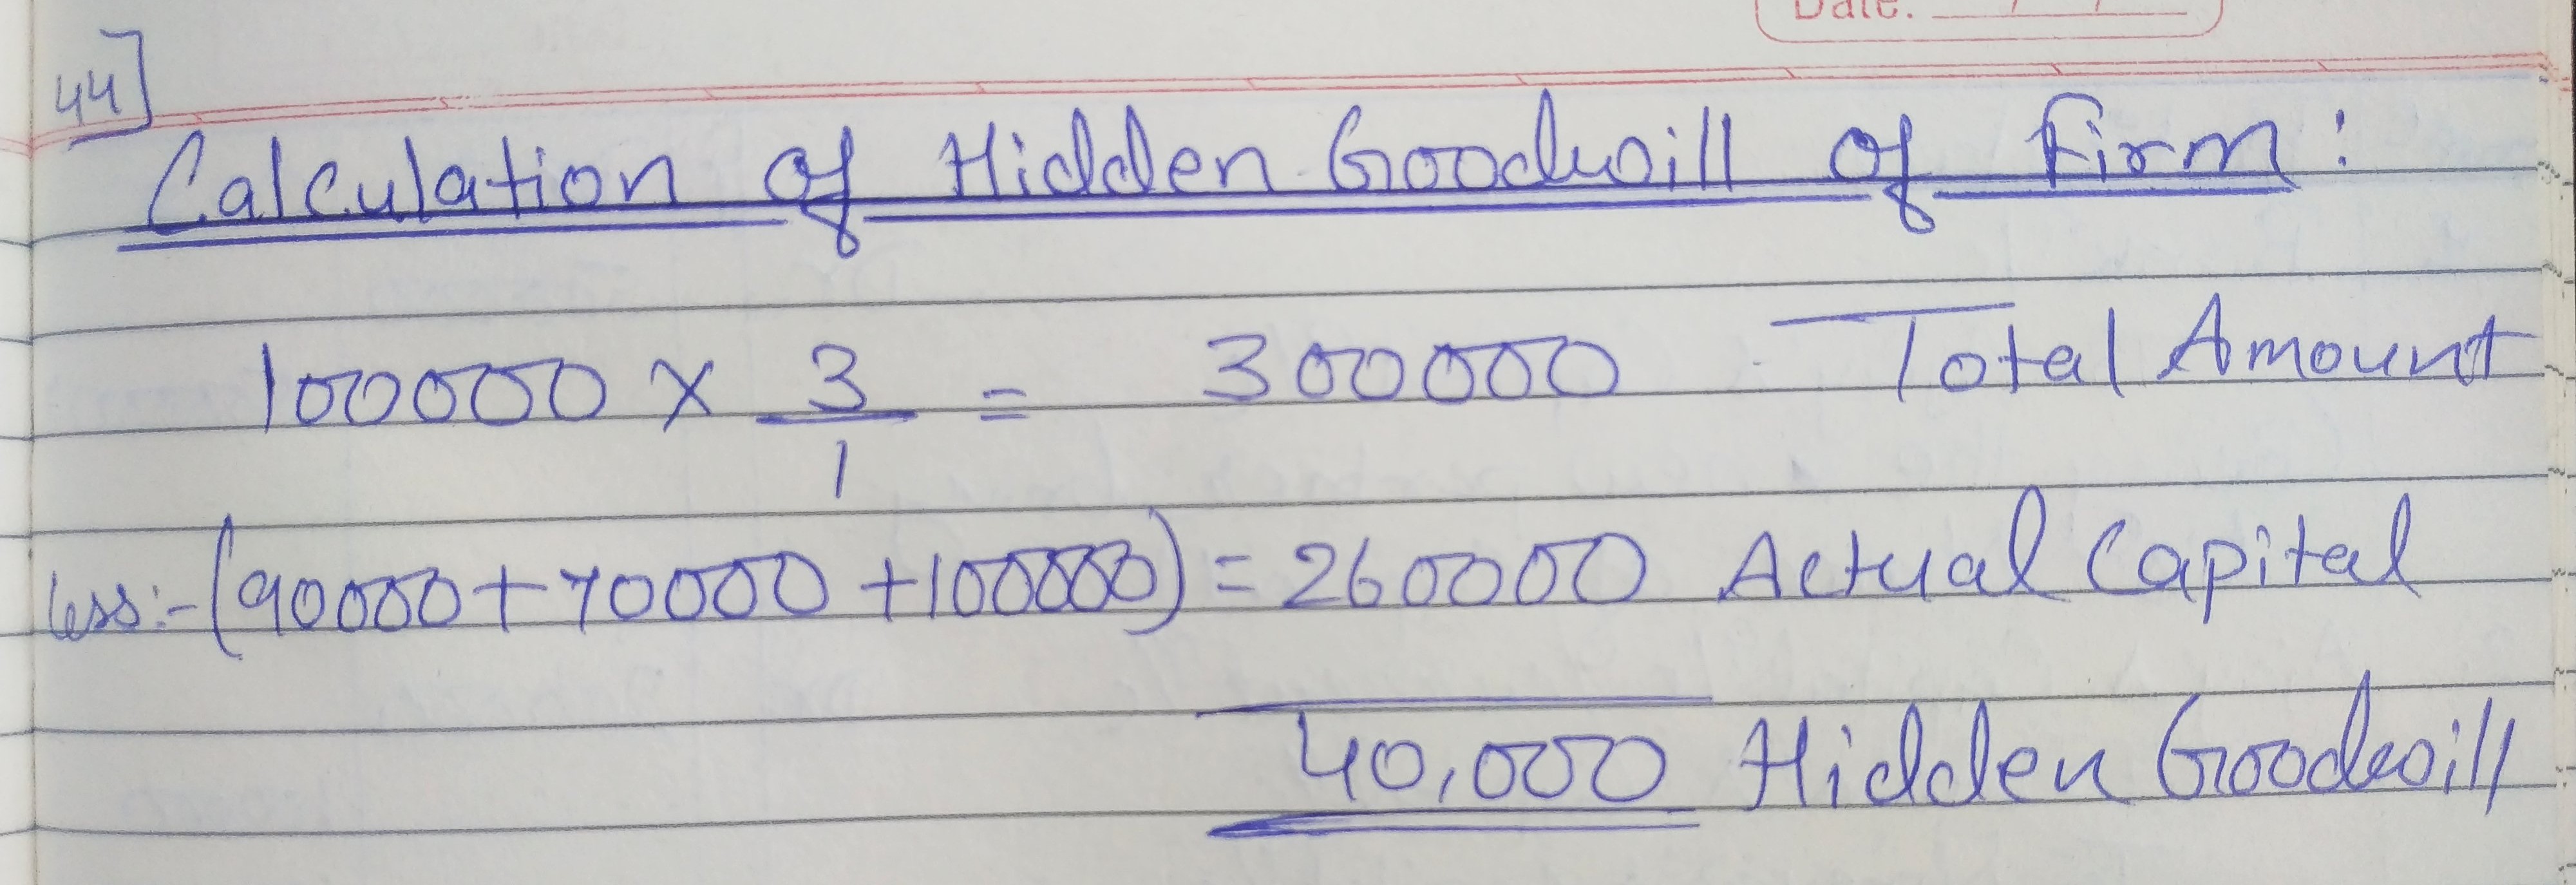 Date. / /
44]
Calculation of Hidden Goodwill of Firm:
100000 × 3/1 = 300000 Total Amount
less:- (90000+70000+100000) = 260000 Actual Capital
40,000 Hidden Goodwill